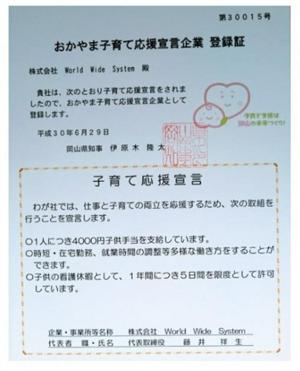 第30015号
おかやま子育て応援宣言企業 登録証
株式会社 World Wide System 殿
貴社は、次のとおり子育て応援宣言をされま
したので、おかやま子育て応援宣言企業として
登録します。
平成30年6月29日
岡山県知事 伊原木 隆太
子育て応援宣言
わが社では、仕事と子育ての両立を応援するため、次の取組を
行うことを宣言します。
○1人につき4000円子供手当を支給しています。
○時短・在宅勤務、就業時間の調整等多様な働き方をすることが
できます。
○子供の看護休暇として、1年間につき5日間を限度として許可
しています。
企業・事業所等名称 株式会社 World Wide System
代表者 職・氏名 代表取締役 藤井 祥生